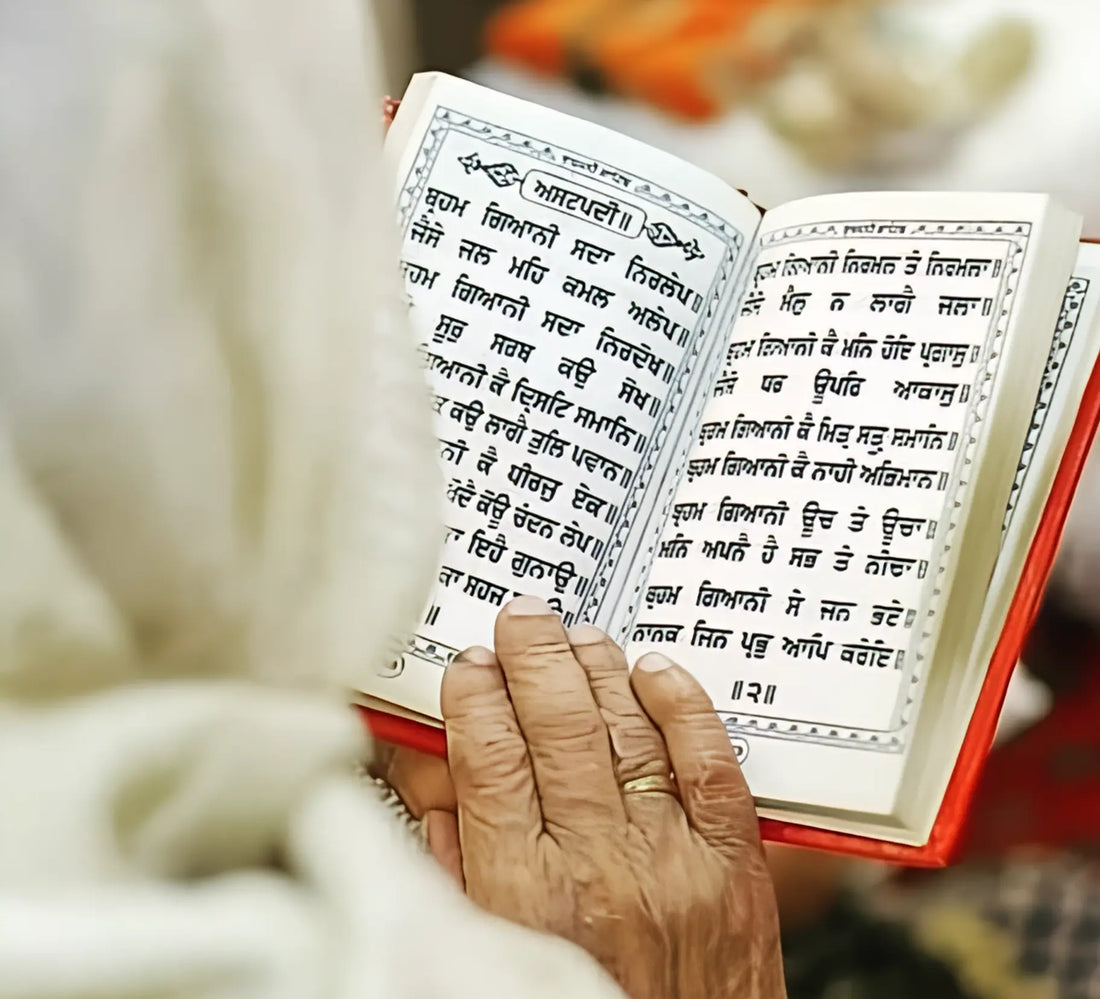 ਅਸਟਪਦੀ॥
ਬ੍ਰਹਮ ਗਿਆਨੀ ਸਦਾ ਨਿਰਲੇਪ॥
ਜੈਸੇ ਜਲ ਮਹਿ ਕਮਲ ਅਲੇਪ॥
ਗਿਆਨੀ ਸਦਾ ਨਿਰਦੋਖ॥
ਸੂਰੁ ਸਰਬ ਕਉ ਸੋਖ॥
ਕੈ ਦ੍ਰਿਸਟਿ ਸਮਾਨਿ॥
ਕਉ ਲਾਗੈ ਤੁਲਿ ਪਵਾਨ॥
ਕੈ ਧੀਰਜੁ ਏਕ॥
ਕਊ ਚੰਦਨ ਲੇਪ॥
ਇਹੈ ਗੁਨਾਉ॥
ਕਾ ਸਹਜ
॥
ਬ੍ਰਹਮ ਗਿਆਨੀ ਨਿਰਮਲ ਤੇ ਨਿਰਮਲਾ॥
ਜੈਸੇ ਮੈਲੁ ਨ ਲਾਗੈ ਜਲਾ॥
ਬ੍ਰਹਮ ਗਿਆਨੀ ਕੈ ਮਨਿ ਹੋਇ ਪ੍ਰਗਾਸੁ॥
ਜੈਸੇ ਧਰ ਊਪਰਿ ਆਕਾਸੁ॥
ਬ੍ਰਹਮ ਗਿਆਨੀ ਕੈ ਮਿਤ੍ਰ ਸਤ੍ਰੁ ਸਮਾਨਿ॥
ਬ੍ਰਹਮ ਗਿਆਨੀ ਕੈ ਨਾਹੀ ਅਭਿਮਾਨ॥
ਬ੍ਰਹਮ ਗਿਆਨੀ ਊਚ ਤੇ ਊਚਾ॥
ਮਨਿ ਅਪਨੈ ਹੈ ਸਭ ਤੇ ਨੀਚਾ॥
ਬ੍ਰਹਮ ਗਿਆਨੀ ਸੇ ਜਨ ਭਏ॥
ਨਾਨਕ ਜਿਨ ਪ੍ਰਭੁ ਆਪਿ ਕਰੇਇ॥
॥੨॥